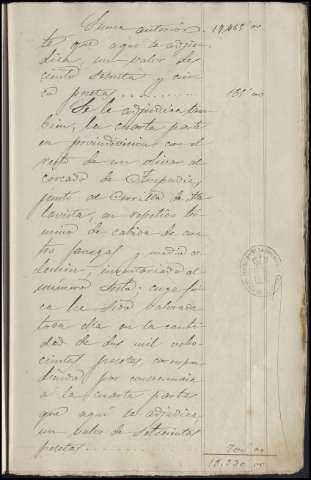 Suma anterior 12,465 00
te que aquí se adjudica, un valor de
ciento sesenta y cin
co pesetas 165 00
Se le adjudica tam
bien, la cuarta parte
en proindivision con el
resto de un olivar
cercado de
junto al
en repetido tér
mino de cabida de cua
tro fanegas y media de
inventariado al
número siete; cuya fin
ca ha sido valorada
toda ella en la canti
dad de dos mil ocho
cientas pesetas correspon
diendo por consecuencia
a la cuarta parte
que aquí se adjudica
un valor de setecientas
pesetas 700 00
13.330 00